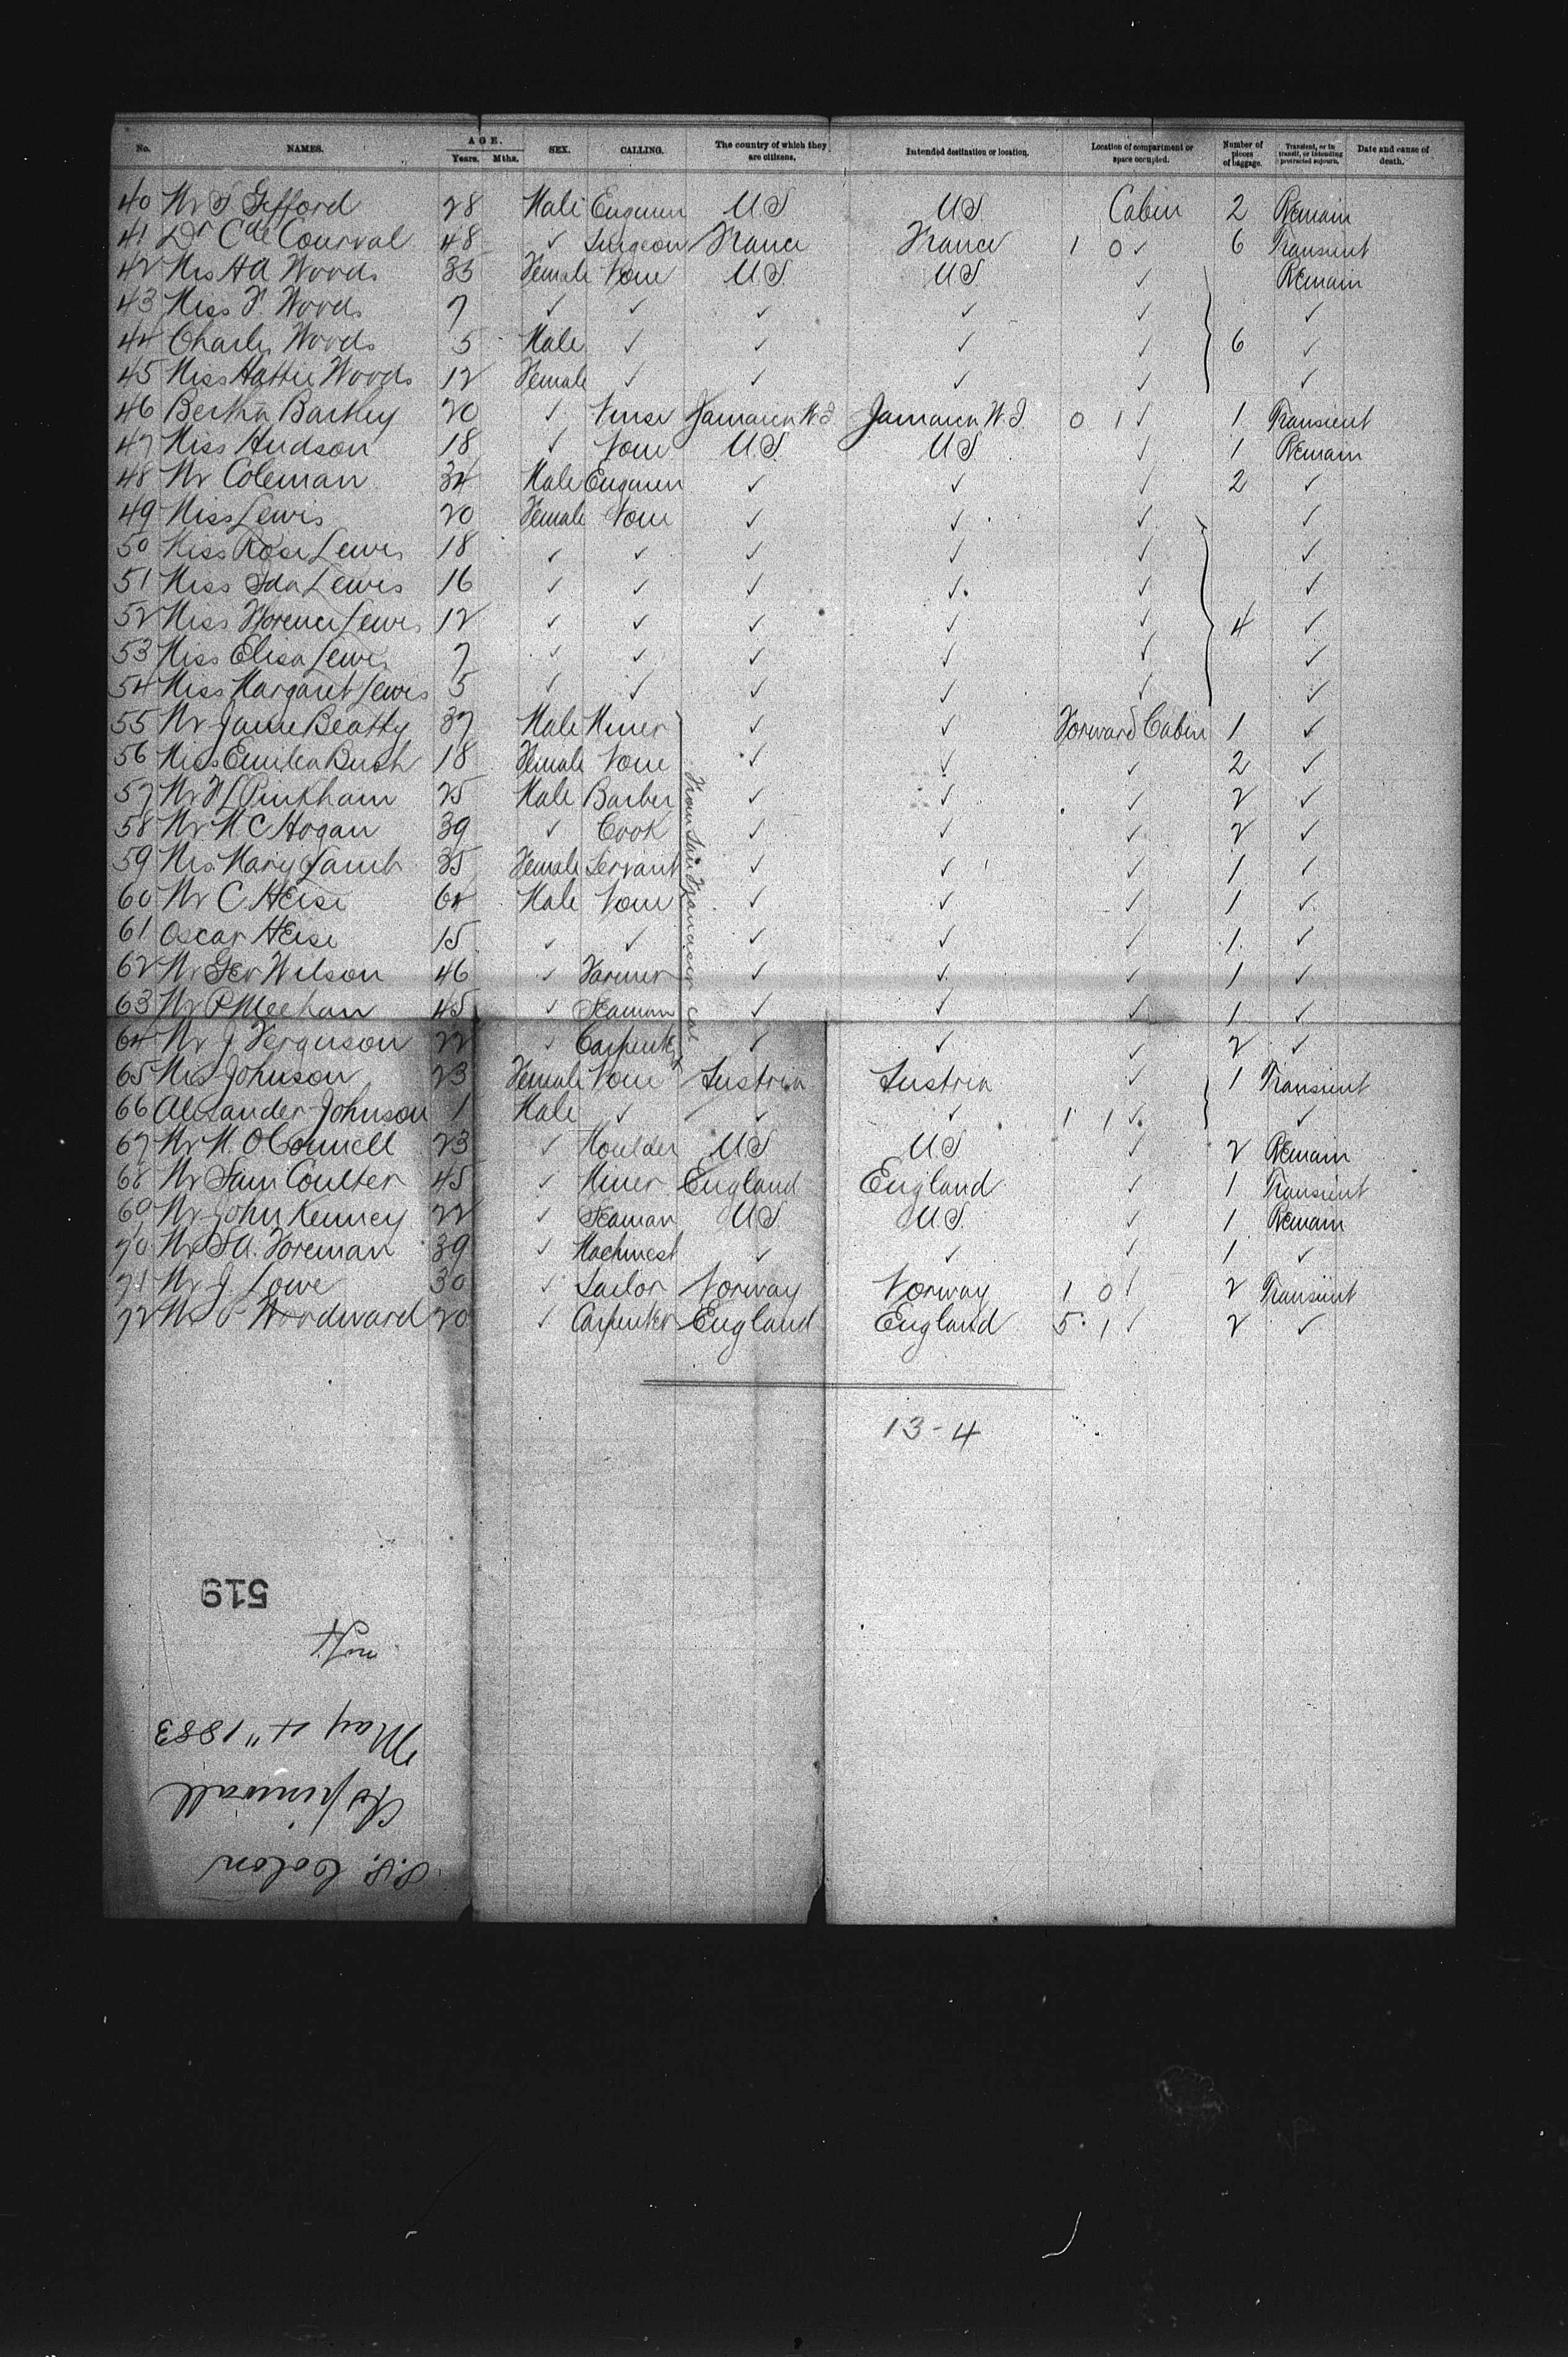 No. NAMES. AGE. Years. Mths. SEX. CALLING. The country of which they are citizens. Intended destination or location. Location of compartment or space occupied. Number of pieces of baggage. Transient, or in transit, or intending protracted sojourn. Date and cause of death.
40 Mr S Gifford 28 Male Engineer U.S. U.S. Cabin 2 Remain
41 Dr C de Courval 48 ✓ Surgeon France France 1 0 ✓ 6 Transient
42 Mrs HA Woods 35 Female None U.S. U.S. ✓ Remain
43 Miss F. Woods 7 ✓ ✓ ✓ ✓ ✓ ✓
44 Charles Woods 5 Male ✓ ✓ ✓ ✓ 6 ✓
45 Miss Hattie Woods 12 Female ✓ ✓ ✓ ✓ ✓
46 Bertha Barkley 20 ✓ Nurse Jamaica W.I. Jamaica W.I. 0 1 ✓ 1 Transient
47 Miss Hudson 18 ✓ None U.S. U.S. ✓ 1 Remain
48 Mr Coleman 34 Male Engineer ✓ ✓ ✓ 2 ✓
49 Miss Lewis 20 Female None ✓ ✓ ✓ ✓
50 Miss Rose Lewis 18 ✓ ✓ ✓ ✓ ✓ ✓
51 Miss Ida Lewis 16 ✓ ✓ ✓ ✓ ✓ ✓
52 Miss Florence Lewis 12 ✓ ✓ ✓ ✓ ✓ 4 ✓
53 Miss Elisa Lewis 7 ✓ ✓ ✓ ✓ ✓ ✓
54 Miss Margaret Lewis 5 ✓ ✓ ✓ ✓ ✓ ✓
55 Mr Jame Beatty 37 Male Miner ✓ ✓ Forward Cabin 1 ✓
56 Miss Emilea Bush 18 Female None ✓ ✓ ✓ 2 ✓
57 Mr F L Pinkham 25 Male Barber ✓ ✓ ✓ 2 ✓
58 Mr M C Hogan 39 ✓ Cook ✓ ✓ ✓ 2 ✓
59 Mrs Mary Lamb 35 Female Servant ✓ ✓ ✓ 1 ✓
60 Mr C. Heise 64 Male None ✓ ✓ ✓ 1 ✓
61 Oscar Heise 15 ✓ ✓ ✓ ✓ ✓ 1 ✓
62 Mr Geo Wilson 46 ✓ Farmer ✓ ✓ ✓ 1 ✓
63 Mr P Meehan 45 ✓ Seaman ✓ ✓ ✓ 1 ✓
64 Mr J Ferguson 22 ✓ Carpenter ✓ ✓ ✓ 2 ✓
From San Francisco Cal
65 Mrs Johnson 23 Female None Austria Austria ✓ 1 Transient
66 Alexander Johnson 1 Male ✓ ✓ ✓ 1 1 ✓ ✓
67 Mr M. O'Connell 23 ✓ Moulder U.S U.S ✓ 2 Remain
68 Mr Sam Coulter 45 ✓ Miner England England ✓ 1 Transient
69 Mr John Kenney 22 ✓ Seaman U.S. U.S. ✓ 1 Remain
70 Mr S A. Foreman 39 ✓ Machinest ✓ ✓ ✓ 1 ✓
71 Mr J. Lowe 30 ✓ Sailor Norway Norway 1 0 ✓ 2 Transient
72 Mr Woodward 20 ✓ Carpenter England England 5 1 ✓ 2 ✓
13-4
519
May 4" 1883
Aspinwall
S.S. Colon